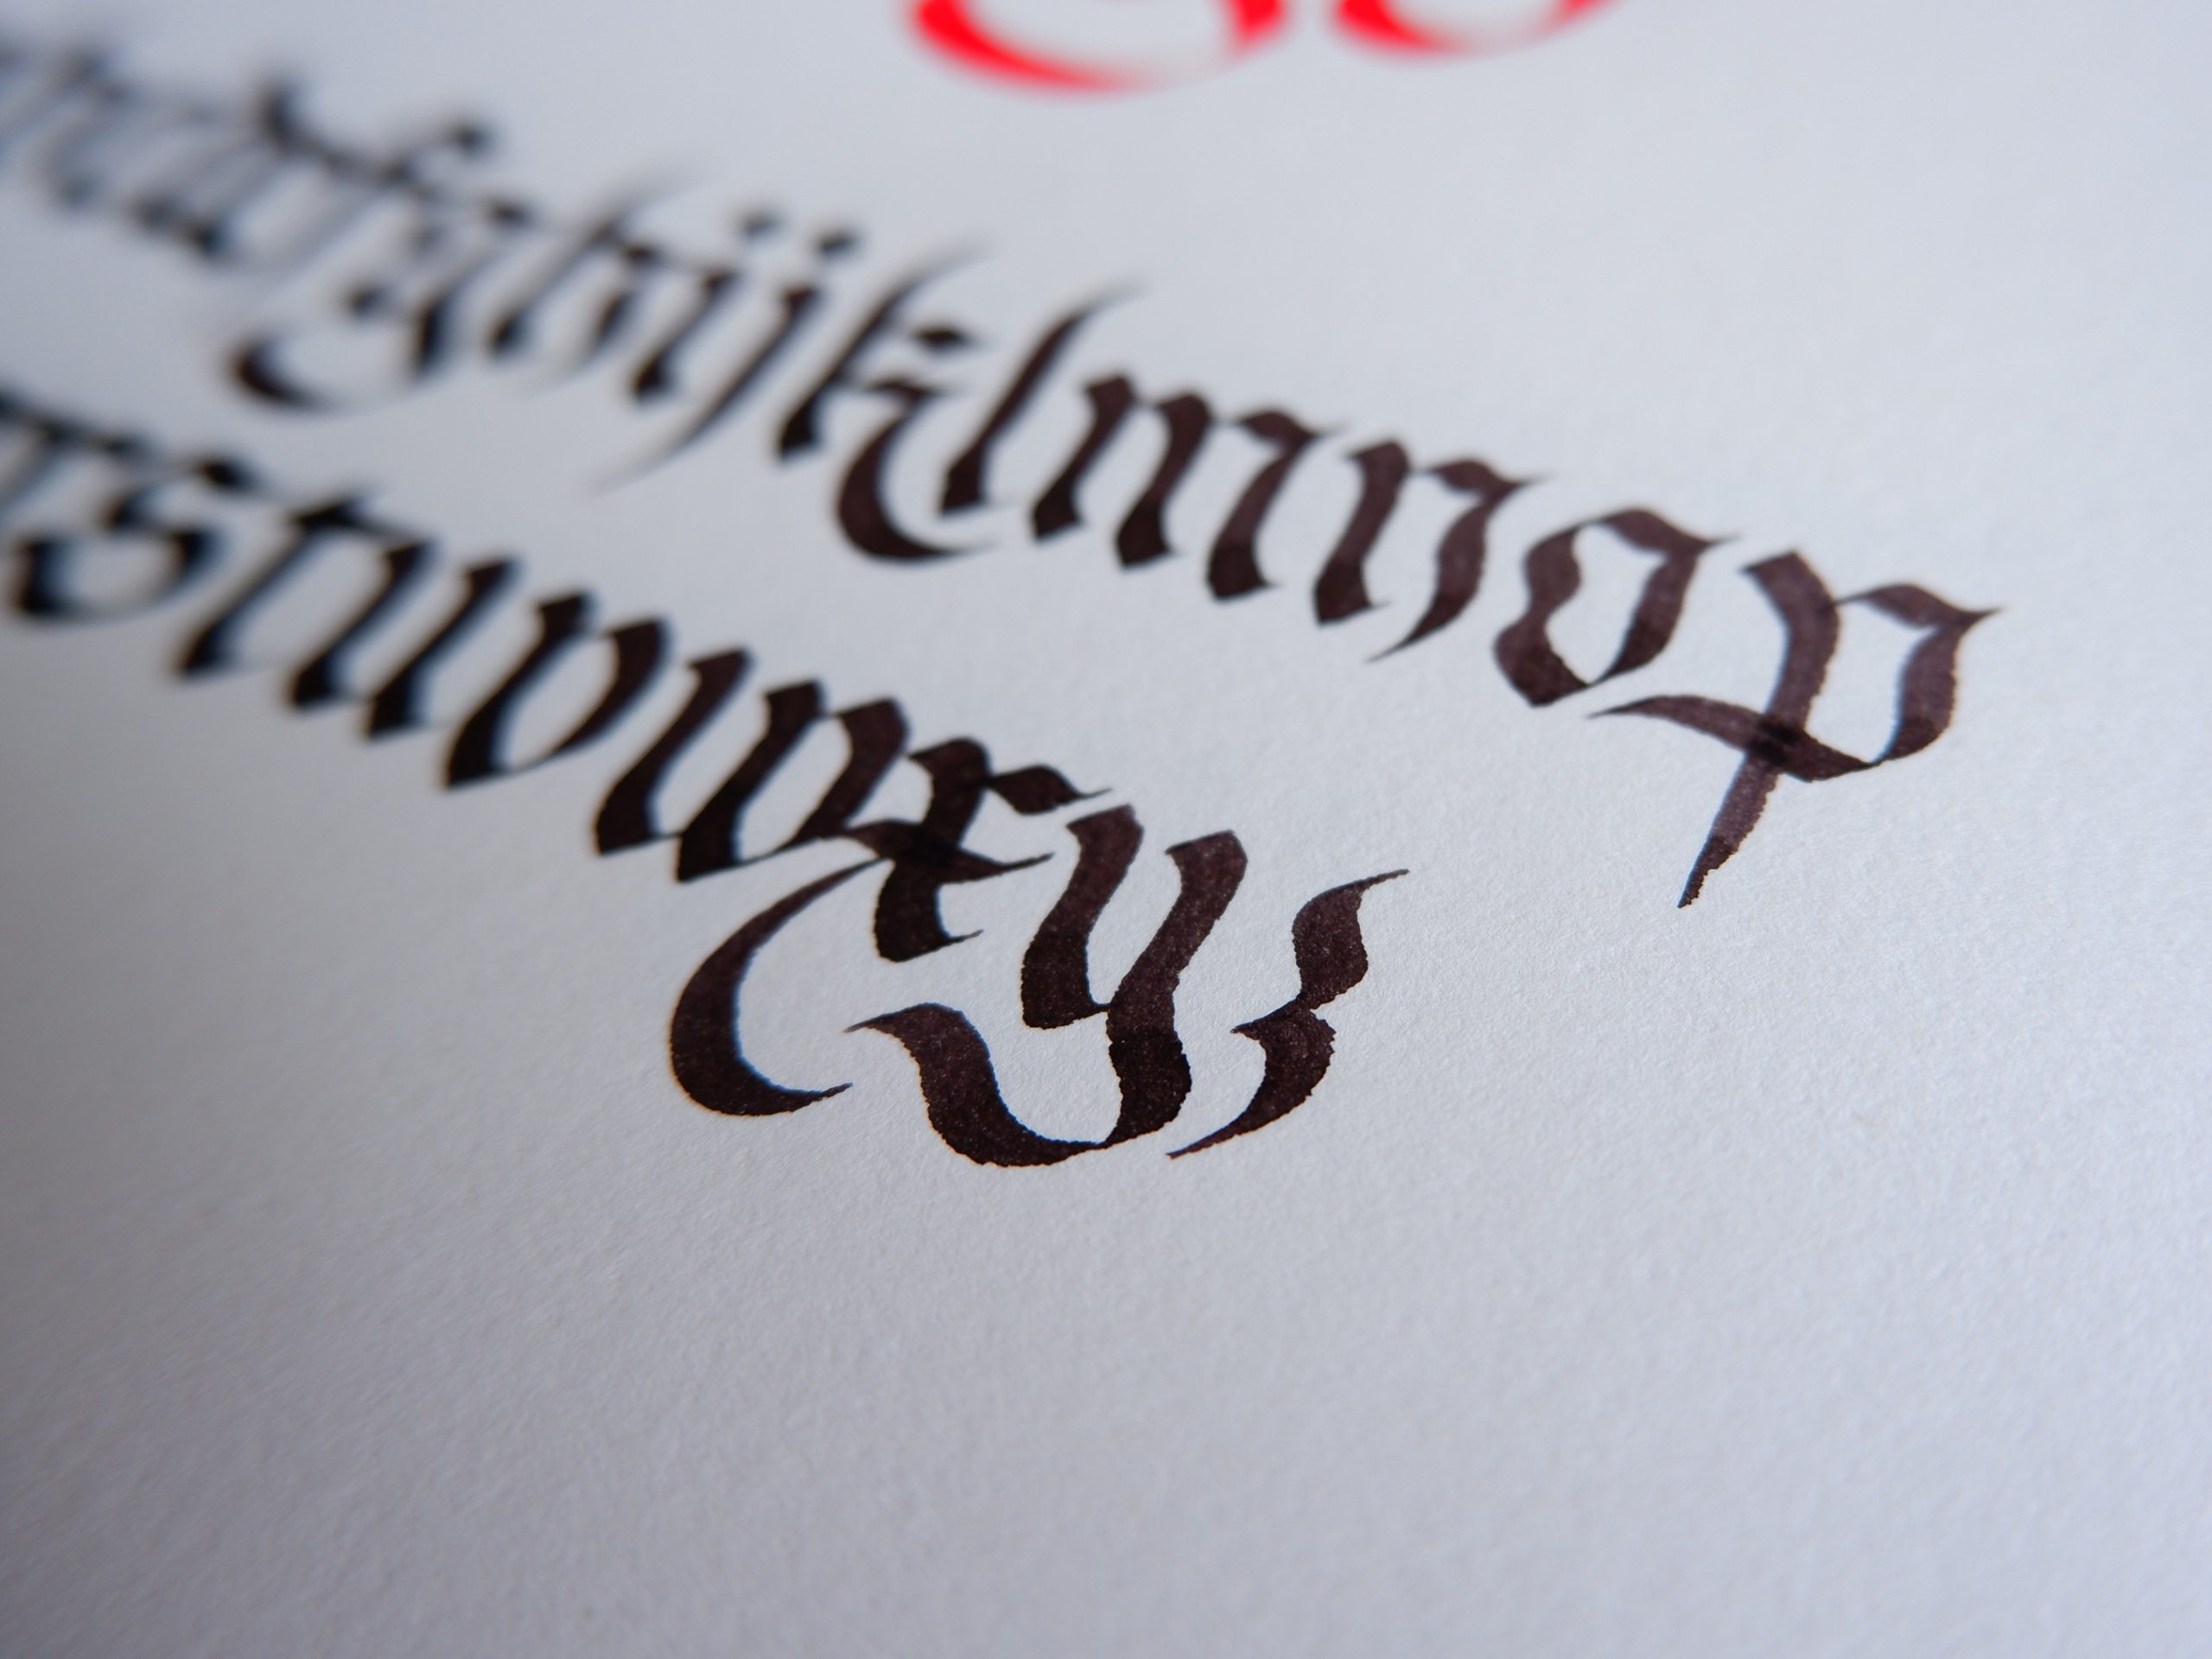 bcdefghijklmnop
rstuvwxyz